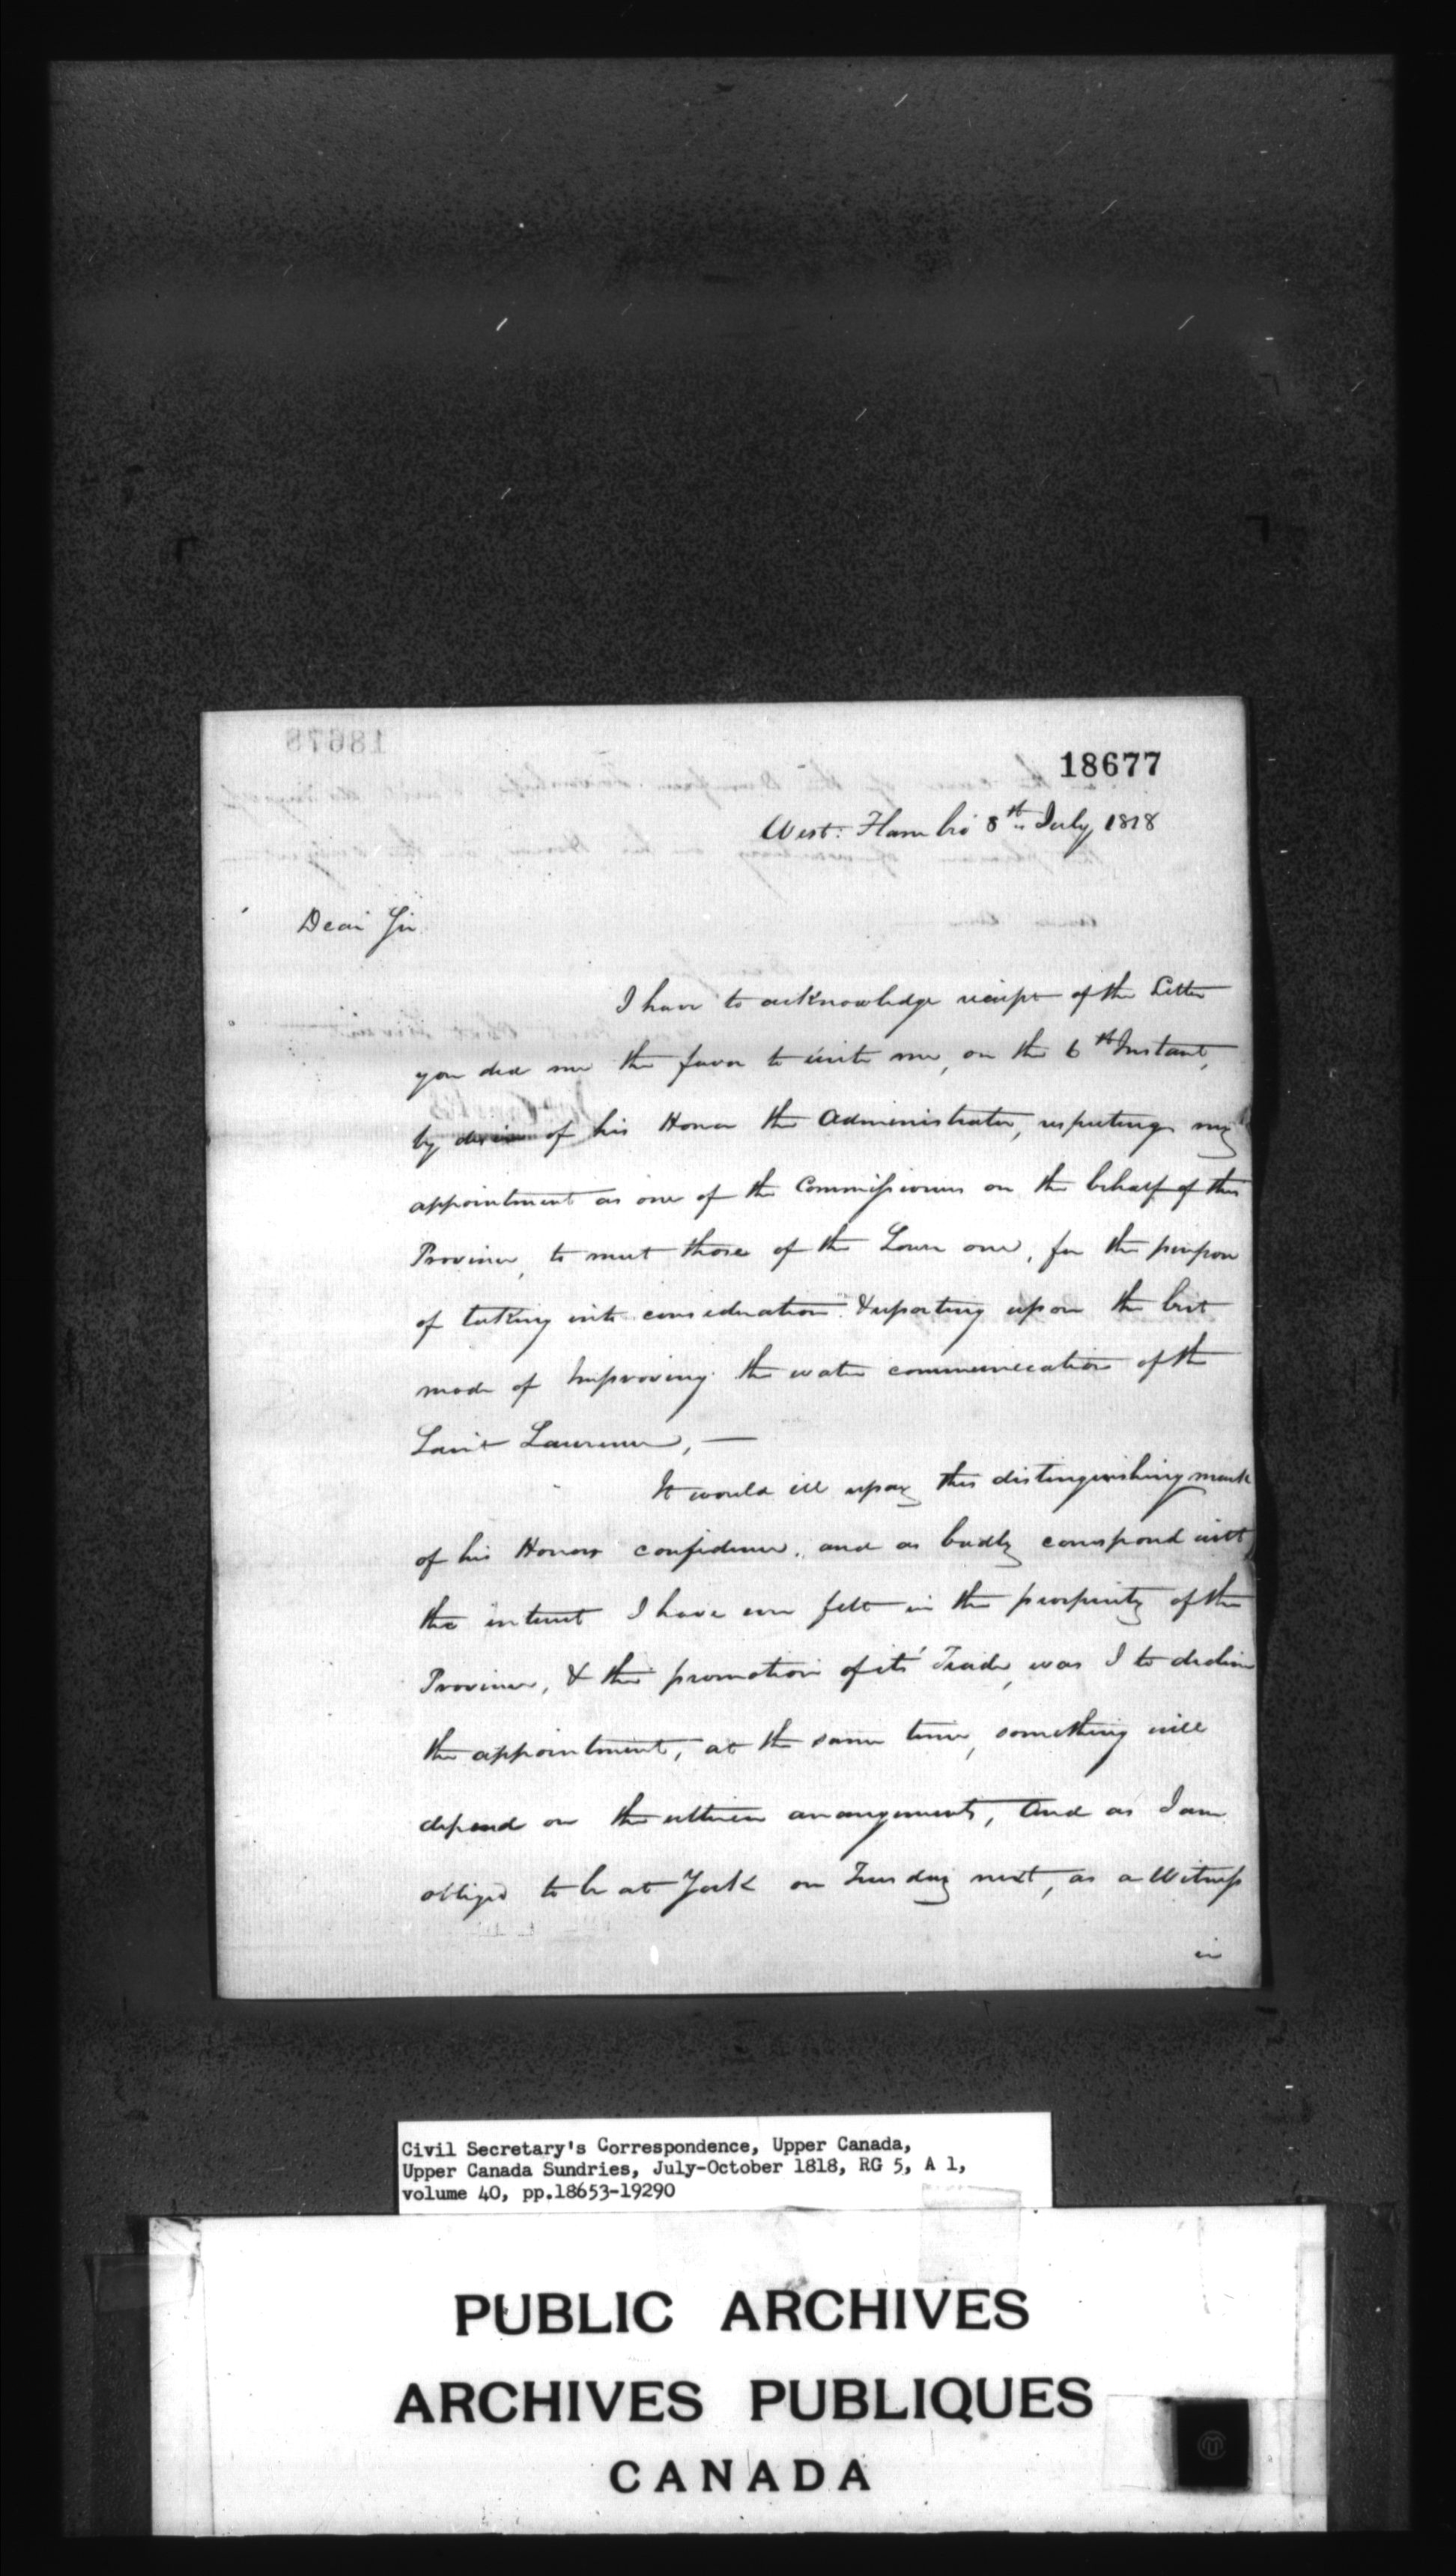 18677
West: Flambro 8th July 1818
Dear Sir
I have to acknowledge receipt of the Letter
you did me the favor to write me, on the 6th Instant,
by desire of his Honor the Administrator, respecting my
appointment as one of the Commissioners on the behalf of this
Province, to meet those of the Lower one, for the purpose
of taking into consideration & reporting upon the best
mode of Improving the water communication of the
Saint Lawrence, —
It would ill repay this distinguishing mark
of his Honors confidence, and as badly correspond with
the interest I have ever felt in the prosperity of the
Province, & the promotion of its' Trade, was I to decline
the appointment, at the same time, something will
depend on the ulterior arrangements, and as I am
obliged to be at York on Tuesday next, as a Witness
in
Civil Secretary's Correspondence, Upper Canada,
Upper Canada Sundries, July-October 1818, RG 5, A 1,
volume 40, pp.18653-19290
PUBLIC ARCHIVES
ARCHIVES PUBLIQUES
CANADA